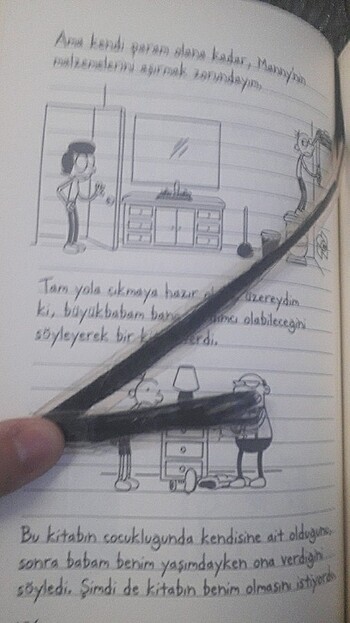 Ama kendi param olana kadar, Manny'nin
malzemelerini aşırmak zorundayım.
Tam yola çıkmaya hazır üzereydim
ki, büyükbabam bana olabileceğini
söyleyerek bir
Bu kitabın çocukluğunda kendisine ait olduğunu,
sonra babam benim yaşımdayken ona verdiğini
söyledi. Şimdi de kitabın benim olmasını istiyordu